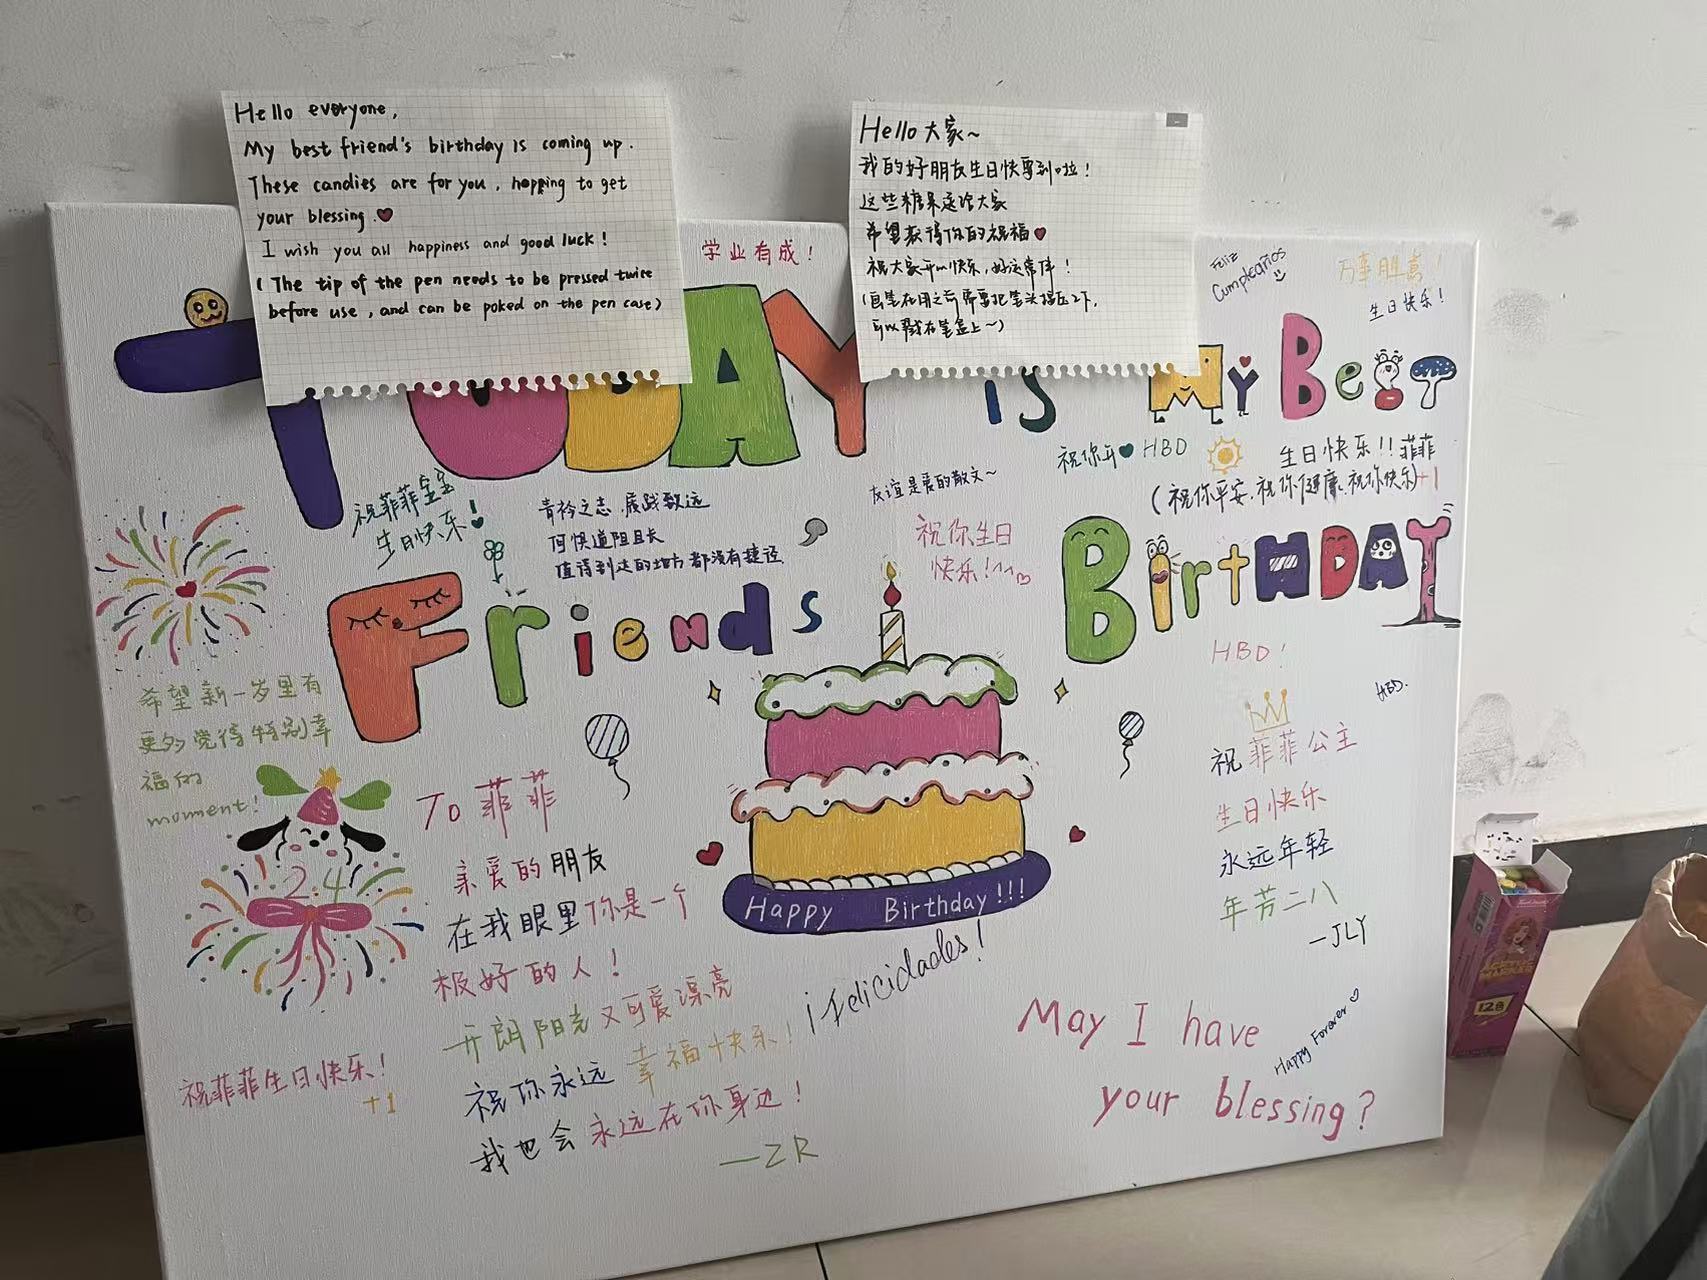 Hello everyone,
My best friend's birthday is coming up.
These candies are for you, hopping to get
your blessing.
I wish you all happiness and good luck!
(The tip of the pen needs to be pressed twice
before use, and can be poked on the pen case)
Hello大家~
我的好朋友生日快要到啦!
这些糖果送给大家
希望获得你的祝福
祝大家开心快乐,好运常伴!
(画笔在用之前需要把笔头摁压2下,
可以戳在笔盒上~)
学业有成!
Feliz
Cumpleaños
万事胜意!
生日快乐!
TODAY is My Best
祝你年 HBD
生日快乐!!菲菲
(祝你平安,祝你健康,祝你快乐)+1
祝菲菲宝宝
生日快乐!
青衿之志,履践致远
何惧道阻且长
值得到达的地方都没有捷径
友谊是爱的散文~
祝你生日
快乐!^^
Friends BirtHDAY
希望新一岁里有
更多觉得特别幸
福的
moment!
24
祝菲菲生日快乐!
+1
To 菲菲
亲爱的朋友
在我眼里你是一个
极好的人!
开朗阳光又可爱漂亮
祝你永远幸福快乐!
我也会永远在你身边!
—ZR
Happy Birthday!!!
¡Felicidades!
HBD!
HBD.
祝菲菲公主
生日快乐
永远年轻
年芳二八
—JLY
May I have
your blessing?
Happy Forever
ACRYLIC
MARKER
12色